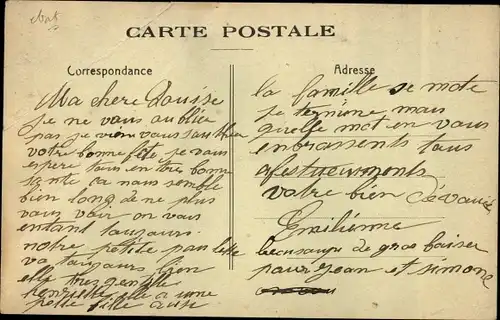 CARTE POSTALE
Correspondance
Ma chere Louise
je ne vous oublie
pas je viens vous
votre bonne fete je vous
espere tous en tres bonne
sante ca nous semble
bien long de ne plus
vous voir on vous
entant toujours
notre petite
va toujours bien
elle tres gentille
henriette elle a une
petite fille aussi
Adresse
la famille se
je termine mais
quelle mot en vous
enbrassents tous
votre bien Dévouée
Emilienne
beaucoups de gros baiser
pour jean et simone